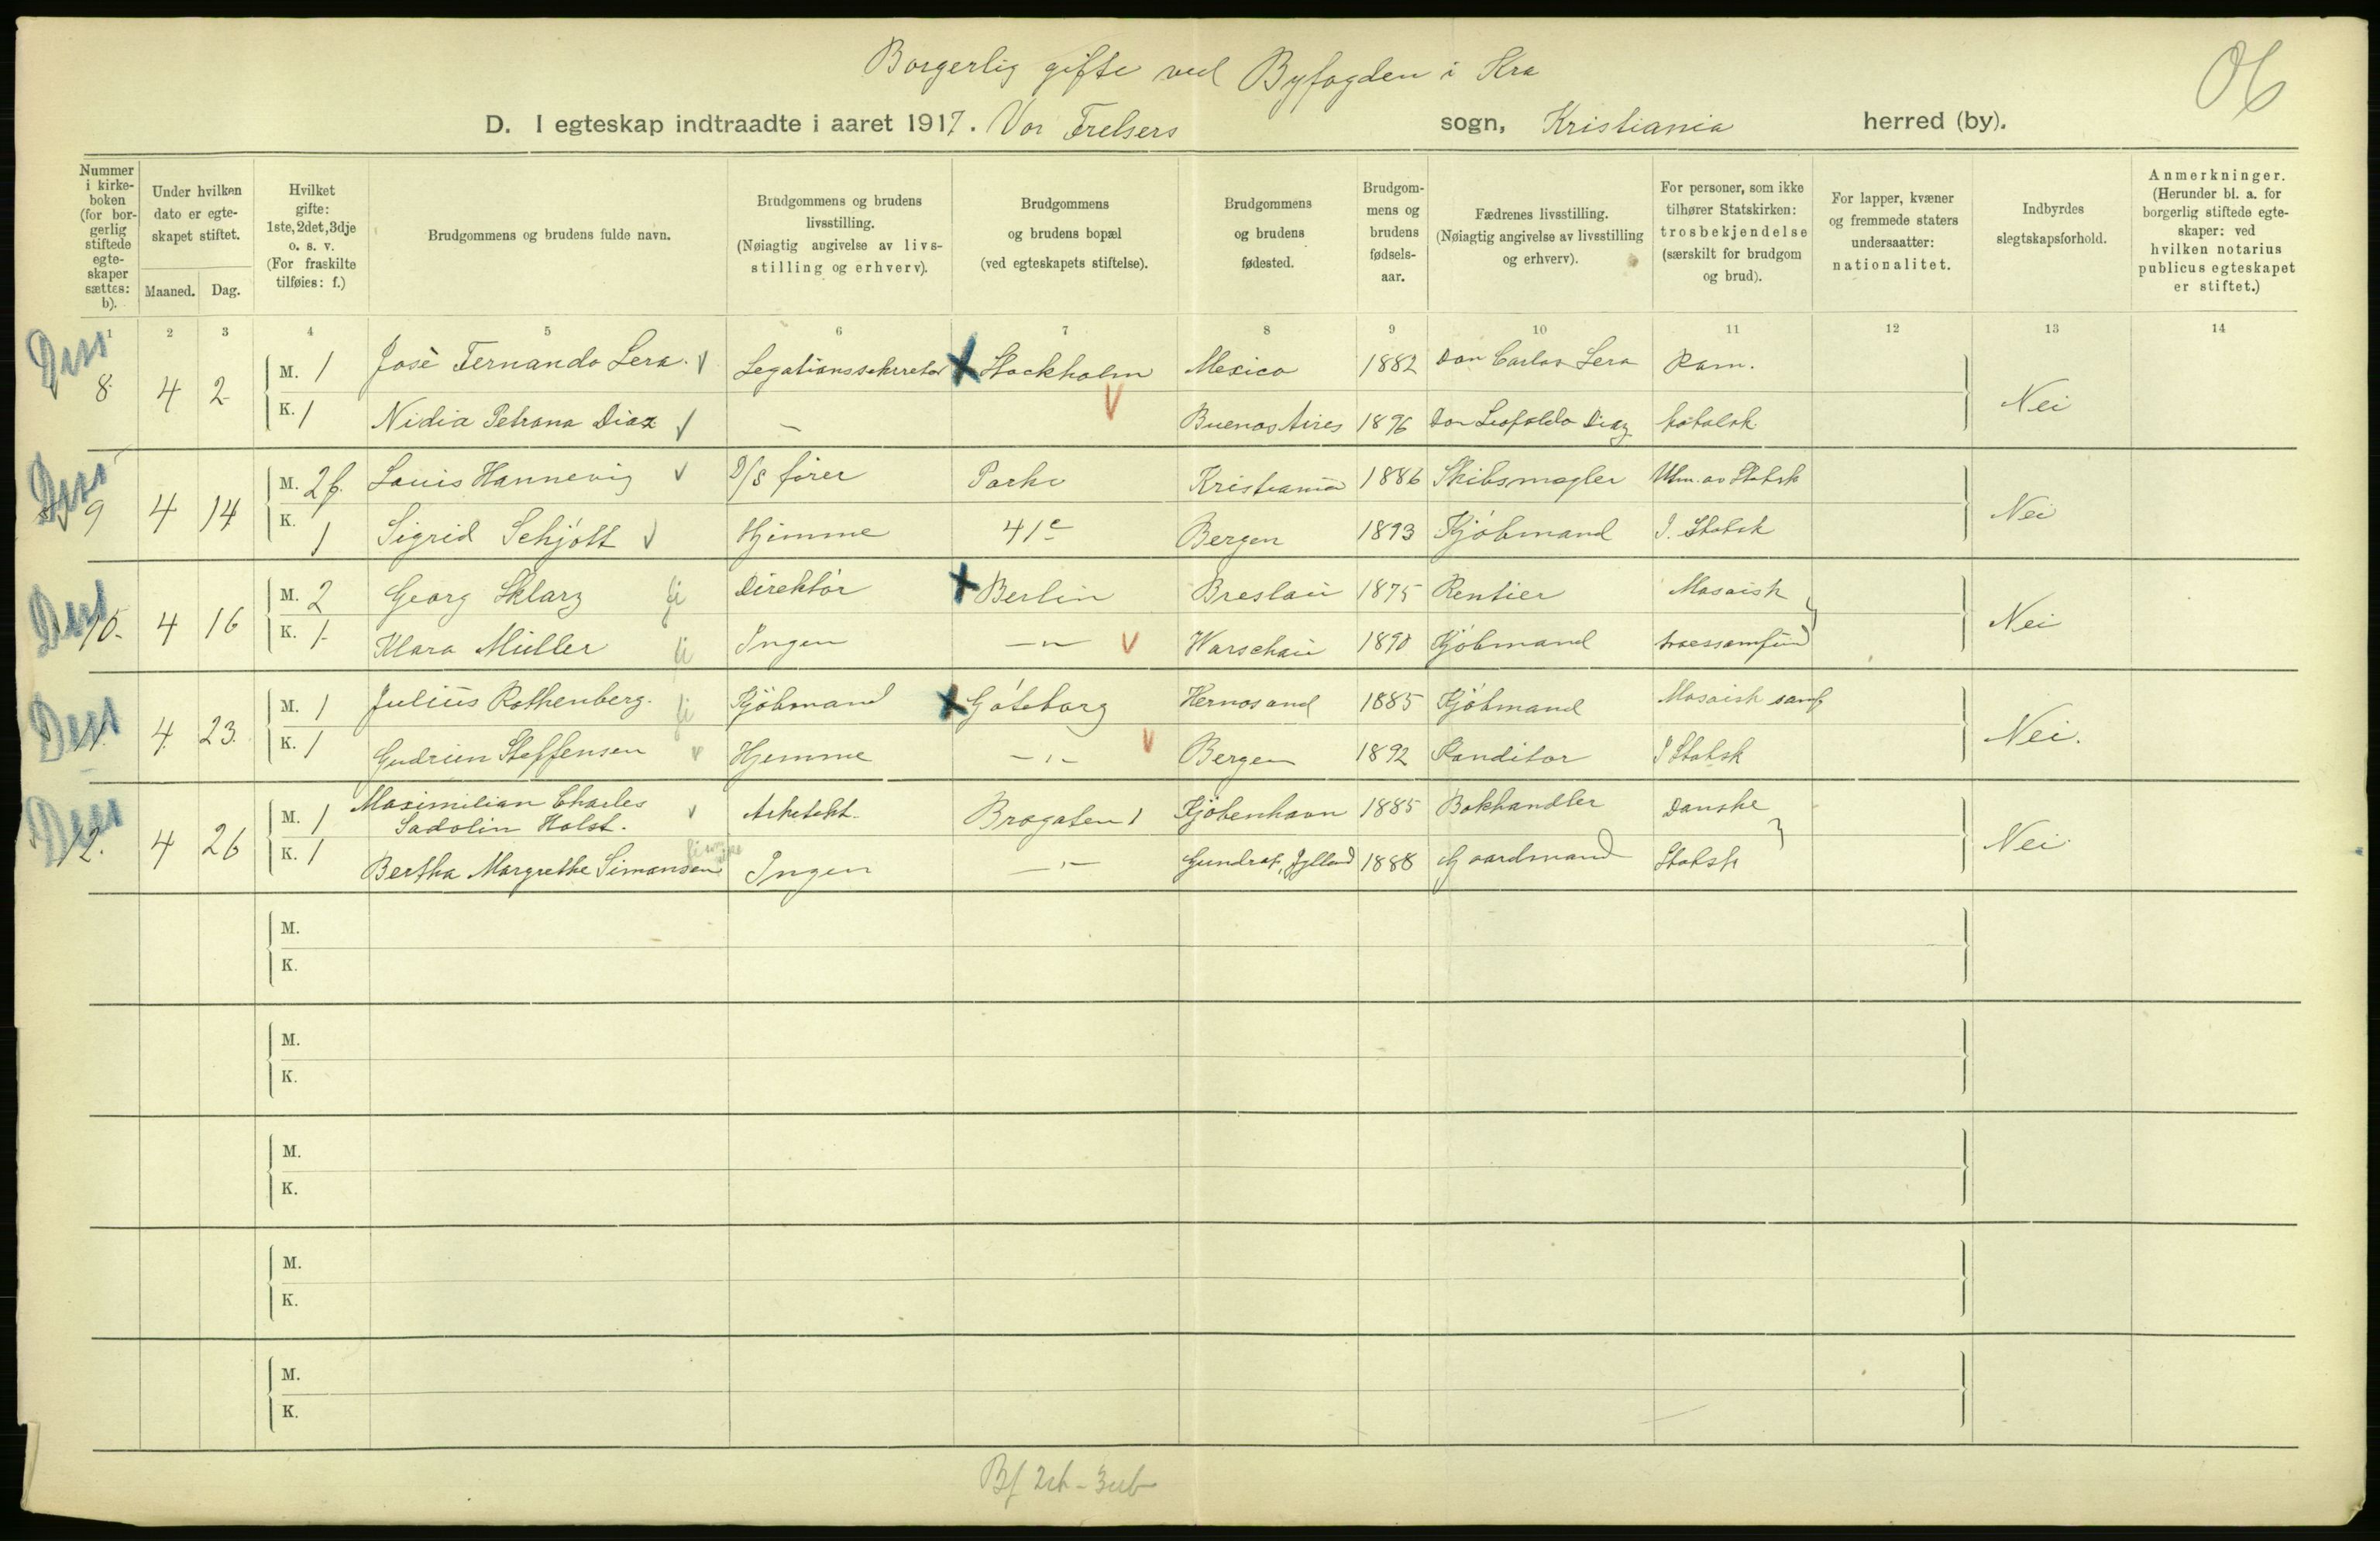 Borgerlig gifte ved Byfogden i Kra
06
D. I egteskap indtraadte i aaret 1917. Vor Frelsers sogn, Kristiania herred (by).
Nummer i kirke-boken (for bor-gerlig stiftede egte-skaper sættes: b).
Under hvilken dato er egte-skapet stiftet.
Maaned. Dag.
Hvilket gifte: 1ste, 2det, 3dje o. s. v. (For fraskilte tilføies: f.)
Brudgommens og brudens fulde navn.
Brudgommens og brudens livsstilling. (Nøiagtig angivelse av livs-stilling og erhverv).
Brudgommens og brudens bopæl (ved egteskapets stiftelse).
Brudgommens og brudens fødested.
Brudgom-mens og brudens fødsels-aar.
Fædrenes livsstilling. (Nøiagtig angivelse av livsstilling og erhverv).
For personer, som ikke tilhører Statskirken: trosbekjendelse (særskilt for brudgom og brud).
For lapper, kvæner og fremmede staters undersaatter: nationalitet.
Indbyrdes slegtskapsforhold.
Anmerkninger. (Herunder bl. a. for borgerlig stiftede egte-skaper: ved hvilken notarius publicus egteskapet er stiftet.)
1 2 3 4 5 6 7 8 9 10 11 12 13 14
8 4 2 M. 1 José Fernando Lera Legationssekretær Stockholm Mexico 1882 Don Carlos Lera Rom. Nei
K. 1 Nidia Petrona Diaz — Buenos Aires 1896 Don Leopoldo Diaz katolsk
9 4 14 M. 2 f. Louis Hannevig D/S fører Parkv Kristiania 1886 Skibsmægler Utm. av Statsk Nei
K. 1 Sigrid Schjött Hjemme 41 c Bergen 1893 Kjöbmand I. Statsk
10. 4 16 M. 2 Georg Sklarz Direktör Berlin Breslau 1875 Rentier Mosaisk Nei
K. 1 Klara Müller Ingen —"— Warschau 1890 Kjöbmand troessamfund
11. 4 23. M. 1 Julius Rothenberg. Kjöbmand Göteborg Hernosand 1885 Kjöbmand Mosaisk samf Nei.
K. 1 Gudrun Steffensen Hjemme —"— Bergen 1892 Konditor I Statsk
12. 4 26 M. 1 Maximilian Charles Sadolin Holst. Arkitekt. Brogaten 1 Kjöbenhavn 1885 Bokhandler Danske Nei
K. 1 Bertha Margrethe Simonsen Ingen —"— Jylland 1888 Gaardmand Statsk
M.
K.
M.
K.
M.
K.
M.
K.
M.
K.